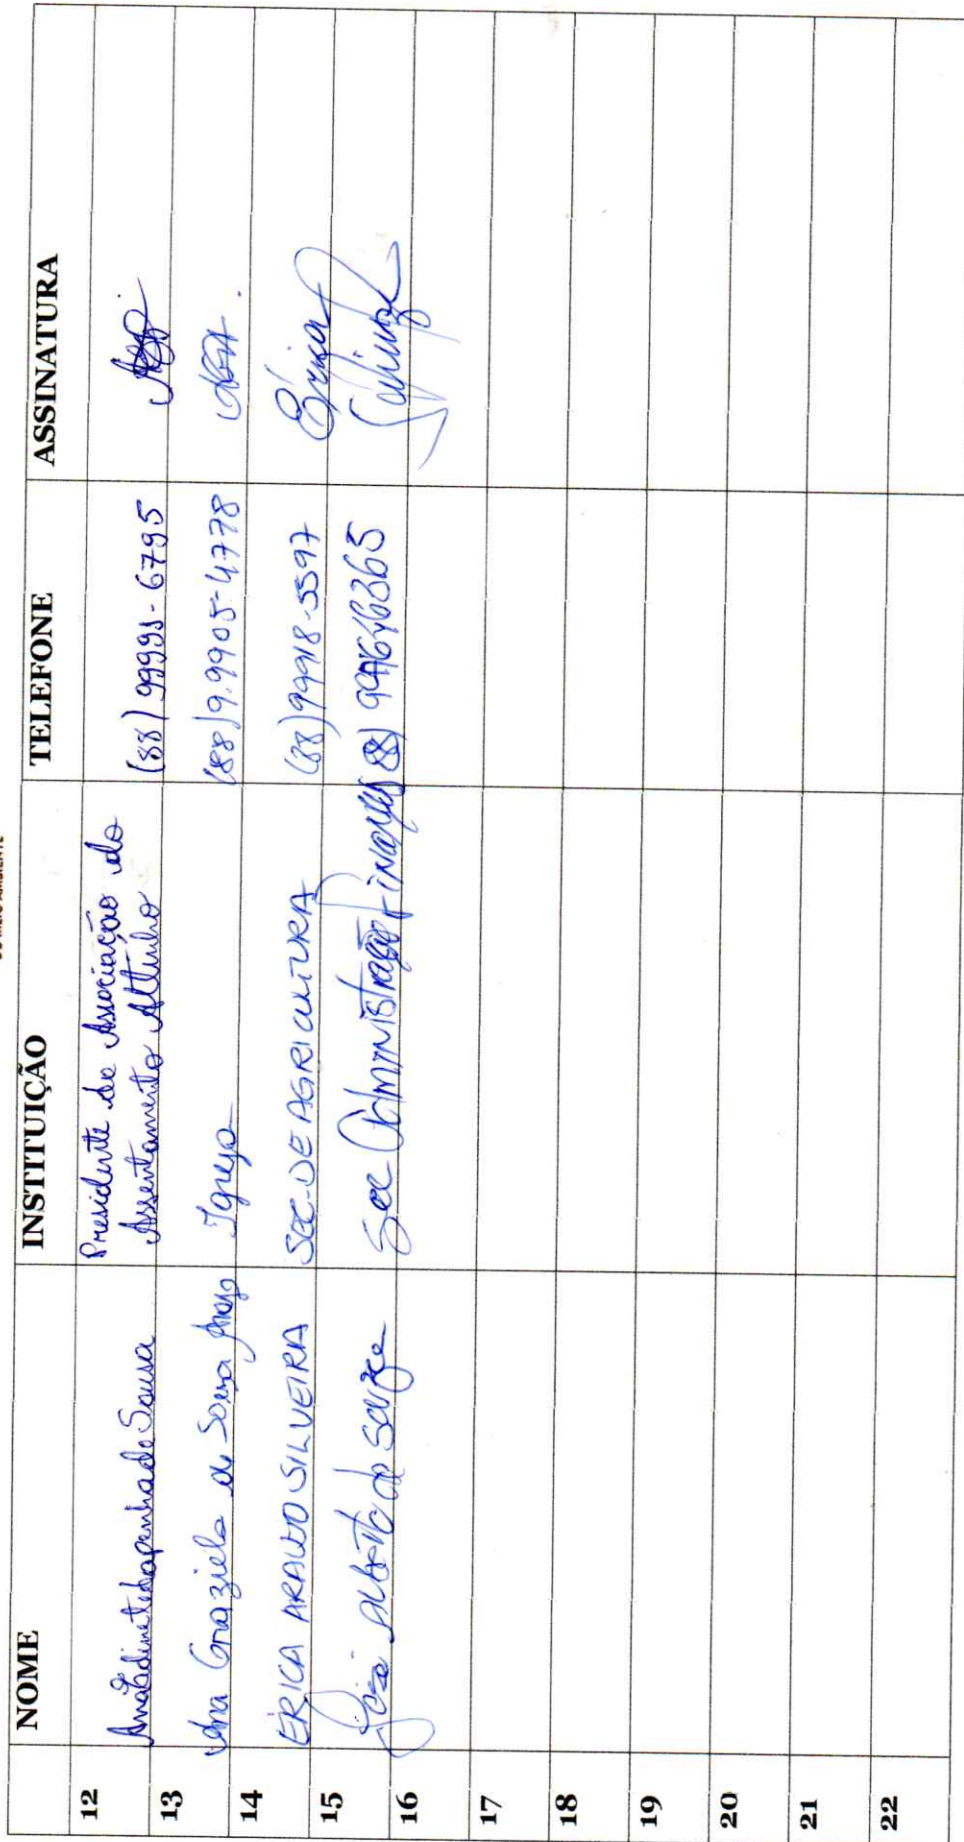 NOME INSTITUIÇÃO TELEFONE ASSINATURA
12 Presidente da Associação do
Assentamento Altinho (88) 99991-6795
13 Ana Graziela de Sousa Igreja (88) 9.9905-4778
14 ÉRICA ARAUJO SILVEIRA SEC. DE AGRICULTURA (88) 99918-5597 Érica
15 José Alberto de Sec Administração Finanças (88)
16
17
18
19
20
21
22